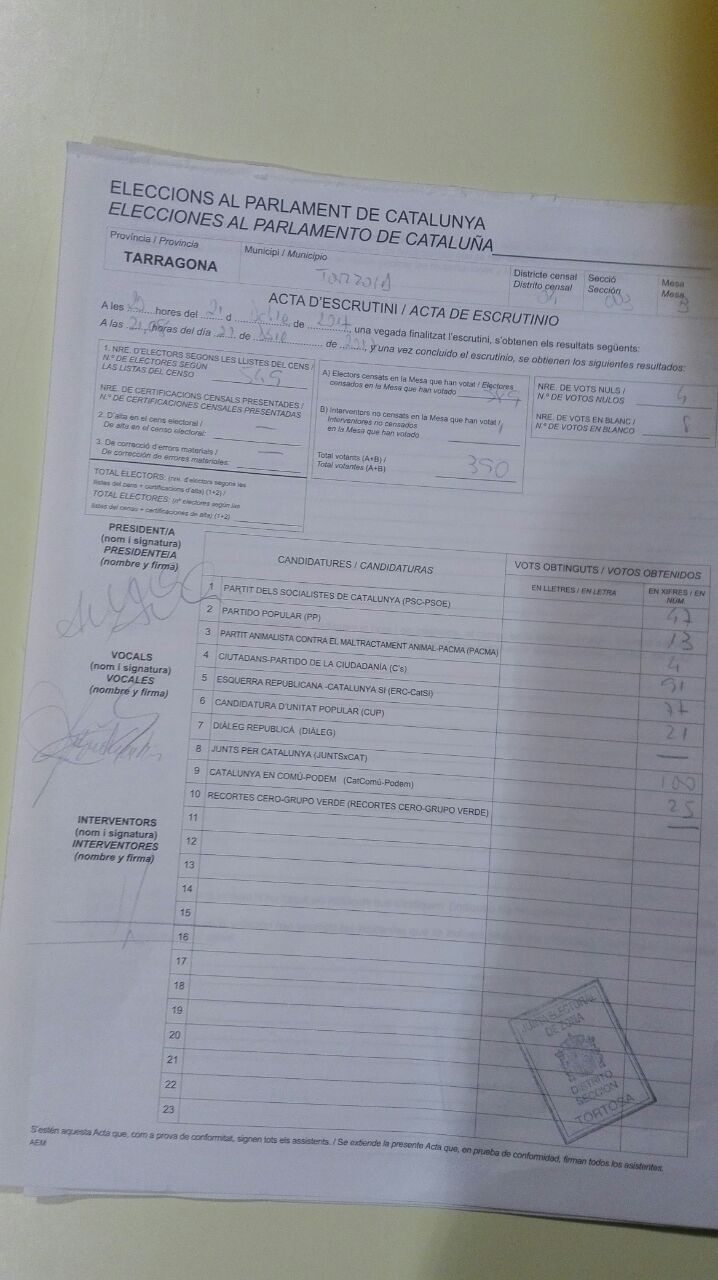 ELECCIONS AL PARLAMENT DE CATALUNYA
ELECCIONES AL PARLAMENTO DE CATALUÑA
Província / Provincia
TARRAGONA
Municipi / Municipio
Districte censal
Distrito censal
Secció
Sección
Mesa
Mesa
ACTA D'ESCRUTINI / ACTA DE ESCRUTINIO
A les hores del 21 d de 2017, una vegada finalitzat l'escrutini, s'obtenen els resultats següents:
A las horas del día de de y una vez concluido el escrutinio, se obtienen los siguientes resultados:
1. NRE. D'ELECTORS SEGONS LES LLISTES DEL CENS /
N.º DE ELECTORES SEGÚN
LAS LISTAS DEL CENSO
NRE. DE CERTIFICACIONS CENSALS PRESENTADES /
N.º DE CERTIFICACIONES CENSALES PRESENTADAS
2. D'alta en el cens electoral /
De alta en el censo electoral:
3. De correcció d'errors materials /
De corrección de errores materiales:
TOTAL ELECTORS: (nre. d'electors segons les
llistes del cens + certificacions d'alta) (1+2) /
TOTAL ELECTORES: (nº electores según las
listas del censo + certificaciones de alta) (1+2)
A) Electors censats en la Mesa que han votat / Electores
censados en la Mesa que han votado 389
B) Interventors no censats en la Mesa que han votat /
Interventores no censados
en la Mesa que han votado 1
Total votants (A+B) /
Total votantes (A+B) 390
NRE. DE VOTS NULS /
N.º DE VOTOS NULOS 4
NRE. DE VOTS EN BLANC /
N.º DE VOTOS EN BLANCO
PRESIDENT/A
(nom i signatura)
PRESIDENTE/A
(nombre y firma)
VOCALS
(nom i signatura)
VOCALES
(nombre y firma)
INTERVENTORS
(nom i signatura)
INTERVENTORES
(nombre y firma)
CANDIDATURES / CANDIDATURAS
VOTS OBTINGUTS / VOTOS OBTENIDOS
EN LLETRES / EN LETRA
EN XIFRES / EN NÚM.
1 PARTIT DELS SOCIALISTES DE CATALUNYA (PSC-PSOE) 47
2 PARTIDO POPULAR (PP) 13
3 PARTIT ANIMALISTA CONTRA EL MALTRACTAMENT ANIMAL-PACMA (PACMA) 4
4 CIUTADANS-PARTIDO DE LA CIUDADANÍA (C's) 91
5 ESQUERRA REPUBLICANA -CATALUNYA SÍ (ERC-CatSí) 77
6 CANDIDATURA D'UNITAT POPULAR (CUP) 21
7 DIÀLEG REPUBLICÀ (DIÀLEG) —
8 JUNTS PER CATALUNYA (JUNTSxCAT) 100
9 CATALUNYA EN COMÚ-PODEM (CatComú-Podem) 25
10 RECORTES CERO-GRUPO VERDE (RECORTES CERO-GRUPO VERDE) —
11
12
13
14
15
16
17
18
19
20
21
22
23
JUNTA ELECTORAL
DE ZONA
DISTRITO
SECCION
TORTOSA
S'estén aquesta Acta que, com a prova de conformitat, signen tots els assistents. / Se extiende la presente Acta que, en prueba de conformidad, firman todos los asistentes.
AEM